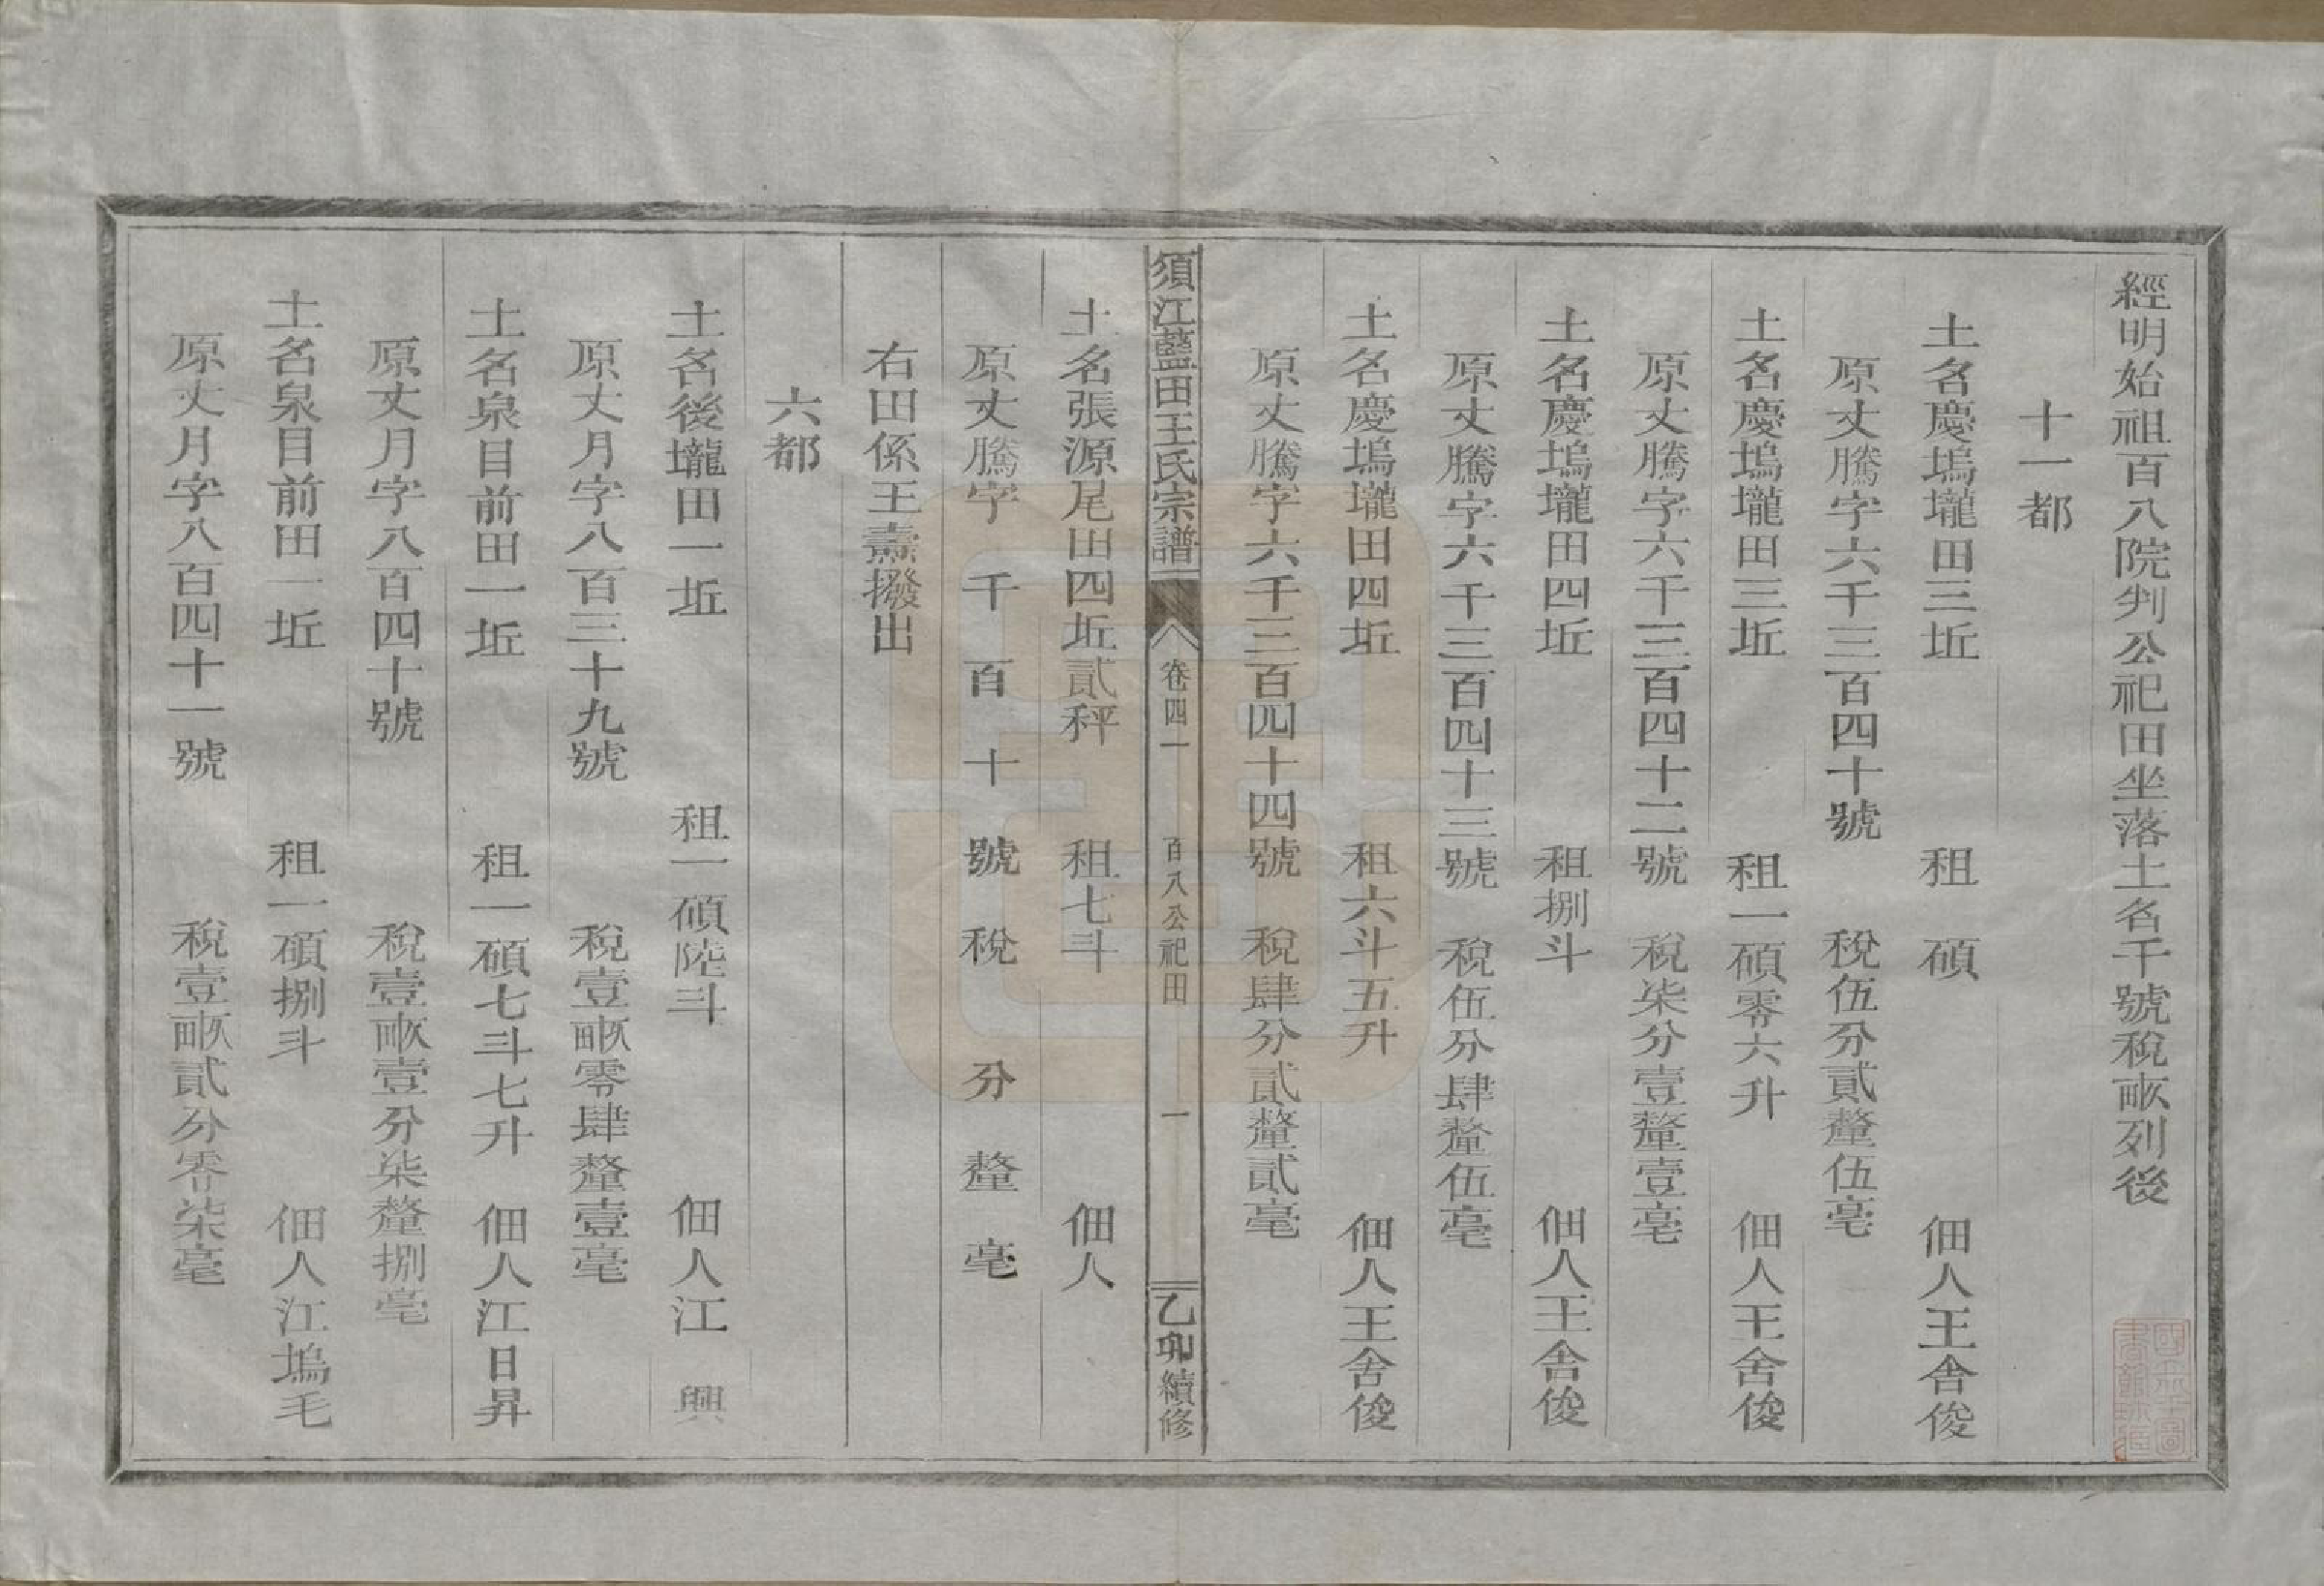 經明始祖百八院判公祀田坐落土名千號稅畝列後
十一都
土名慶塢壠田三坵 租 碩 佃人王舍俊
原丈騰字六千三百四十號 稅伍分貳釐伍毫
土名慶塢壠田三坵 租一碩零六升 佃人王舍俊
原丈騰字六千三百四十二號 稅柒分壹釐壹毫
土名慶塢壠田四坵 租捌斗 佃人王舍俊
原丈騰字六千三百四十三號 稅伍分肆釐伍毫
土名慶塢壠田四坵 租六斗五升 佃人王舍俊
原丈騰字六千三百四十四號 稅肆分貳釐貳毫
須江藍田王氏宗譜 卷四一 百八公祀田 一 乙卯續修
土名張源尾田四坵貳秤 租七斗 佃人
原丈騰字 千 百 十 號 稅 分 釐 毫
右田係王燾撥出
六都
土名後壠田一坵 租一碩陸斗 佃人江 興
原丈月字八百三十九號 稅壹畝零肆釐壹毫
土名泉目前田一坵 租一碩七斗七升 佃人江日昇
原丈月字八百四十號 稅壹畝壹分柒釐捌毫
土名泉目前田一坵 租一碩捌斗 佃人江塢毛
原丈月字八百四十一號 稅壹畝貳分零柒毫